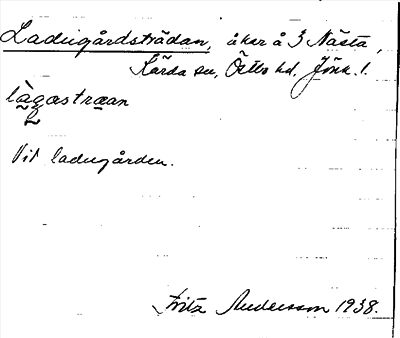 Ladugårdsträdan, åker å 3 Nästa,
Kärda sn, Östbo hd, Jönk. l.
làgastraan
Vid ladugården.
Fritz Andersson 1938.